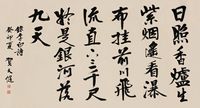 日照香爐生
紫烟遥看瀑
布挂前川飛
流直下三千尺
疑是銀河落
九天
錄李白詩
癸卯夏 賀天健